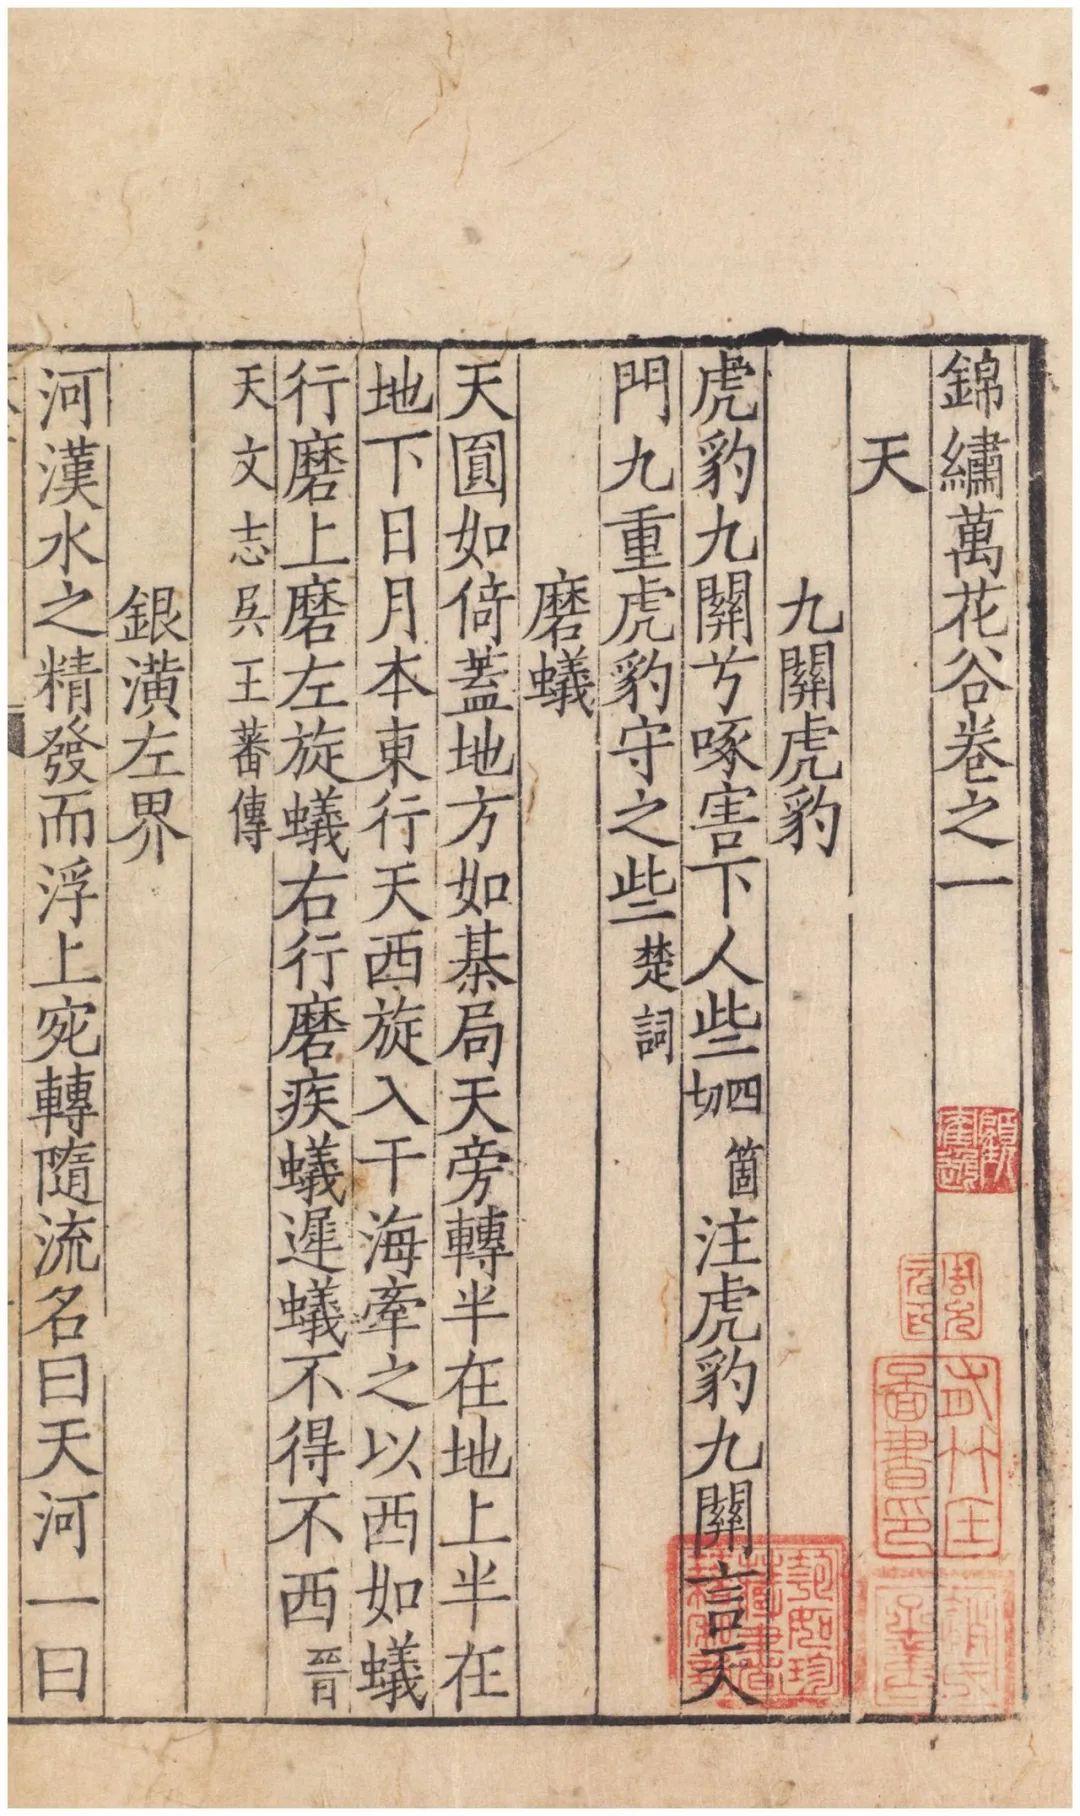 錦繡萬花谷卷之一
天
九關虎豹
虎豹九關兮啄害下人些四切箇注虎豹九關言天
門九重虎豹守之些楚詞
磨蟻
天圎如倚蓋地方如棊局天旁轉半在地上半在
地下日月本東行天西旋入于海牽之以西如蟻
行磨上磨左旋蟻右行磨疾蟻遲蟻不得不西晉
天文志吳王蕃傳
銀潢左界
河漢水之精發而浮上宛轉隨流名曰天河一曰